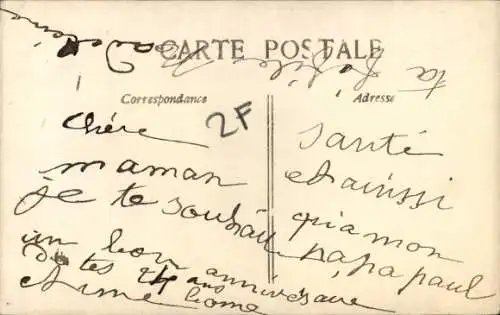 CARTE POSTALE
Correspondance
Adresse
2F
Chére
maman
je te souhaite
un bon anniversaire
De tes 24 ans
santé
et aussi
qua mon
papa paul
ta